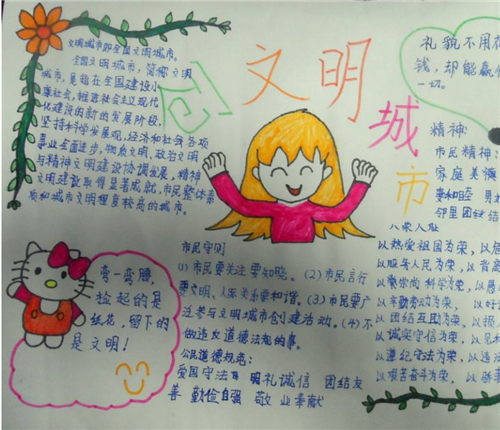 创文明城市
文明城市即全国文明城市。
全国文明城市,简称文明
城市,是指在全国建设小
康社会,推进社会主义现代
化建设的新的发展阶段,
坚持科学发展观,经济和社会各项
事业全面进步,物质文明,政治文明
与精神文明建设协调发展,精神
文明建设取得显著成就,市民整体素
质和城市文明程度较高的城市。
礼貌不用花
钱,却能赢得
一切。
精神:
市民精神:
家庭美德
妻和睦 男
邻里团结
八荣八耻
以热爱祖国为荣,以危
以服务人民为荣,以背
以崇尚科学为荣,以愚
以辛勤劳动为荣,以好
以团结互助为荣,以损
以诚实守信为荣,以见
以遵纪守法为荣,以违
以艰苦奋斗为荣,以骄
弯一弯腰,
捡起的是
纸花,留下的
是文明!
市民守则
(1)市民要关注要知晓。(2)市民言行
要文明,人际关系要和谐。(3)市民要广
泛参与文明城市创建活动。(4)不
做违反道德法规的事。
公民道德规范:
爱国守法 明礼诚信 团结友
善 勤俭自强 敬业奉献